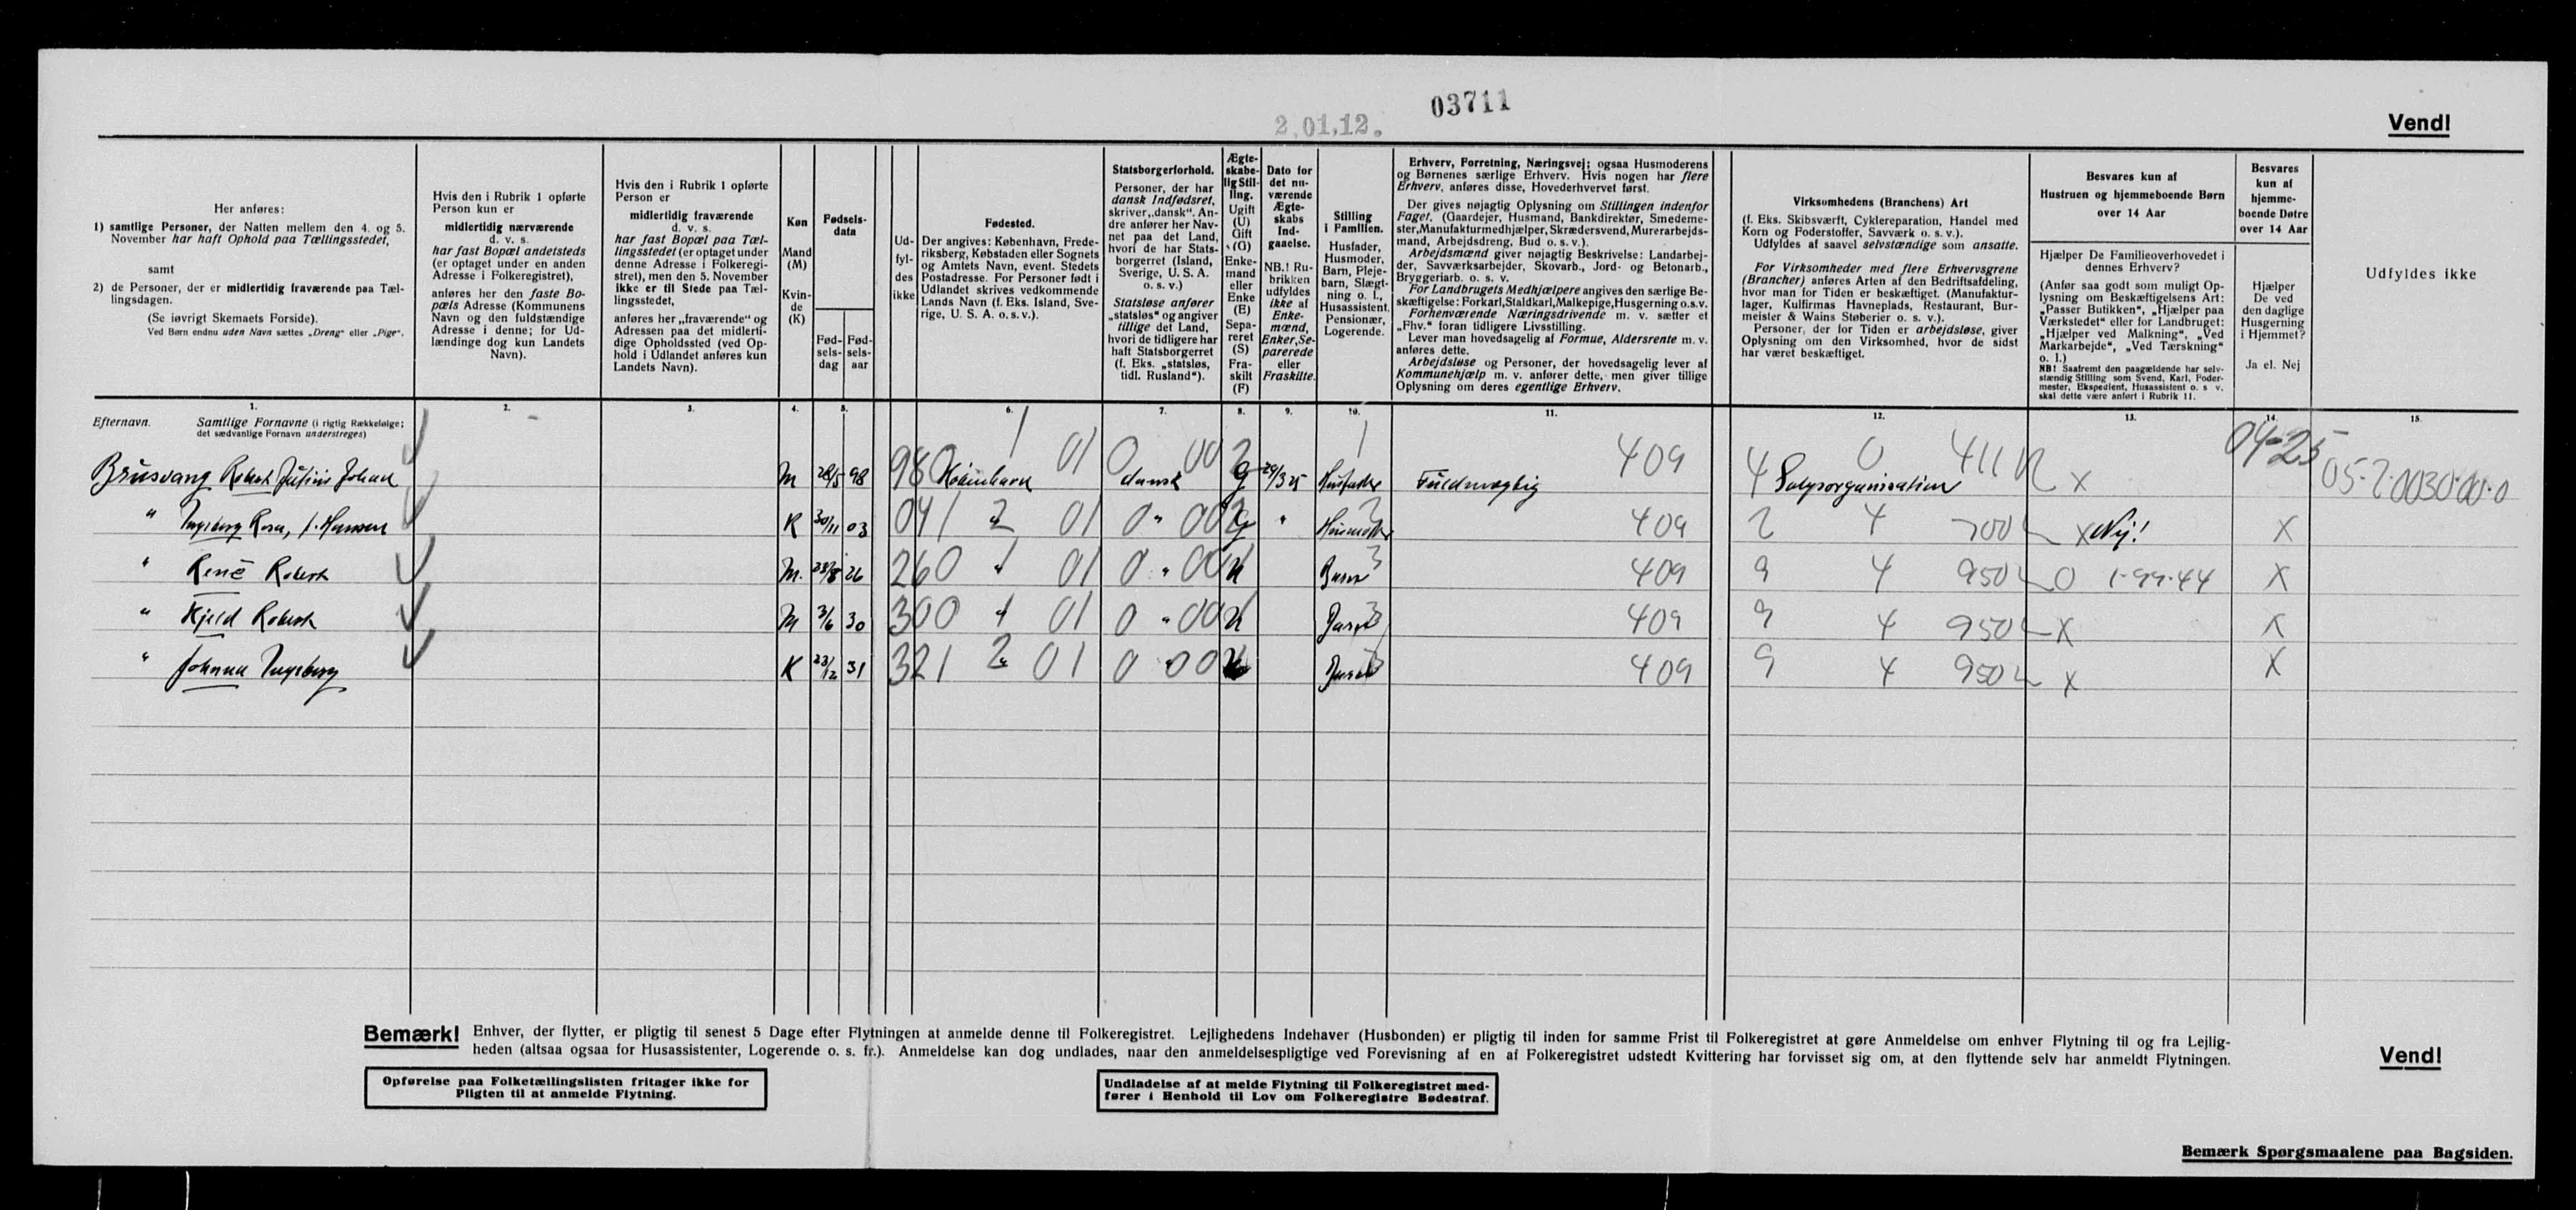 03711
2.01.12.
Vend!
Her anføres:
1) samtlige Personer, der Natten mellem den 4. og 5.
November har haft Ophold paa Tællingsstedet,
samt
2) de Personer, der er midlertidig fraværende paa Tæl-
lingsdagen.
(Se iøvrigt Skemaets Forside).
Ved Børn endnu uden Navn sættes „Dreng“ eller „Pige“.
Hvis den i Rubrik 1 opførte
Person kun er
midlertidig nærværende
d. v. s.
har fast Bopæl andetsteds
(er optaget under en anden
Adresse i Folkeregistret),
anføres her den faste Bo-
pæls Adresse (Kommunens
Navn og den fuldstændige
Adresse i denne; for Ud-
lændinge dog kun Landets
Navn).
Hvis den i Rubrik 1 opførte
Person er
midlertidig fraværende
d. v. s.
har fast Bopæl paa Tæl-
lingsstedet (er optaget under
denne Adresse i Folkeregi-
stret), men den 5. November
ikke er til Stede paa Tæl-
lingsstedet,
anføres her „fraværende“ og
Adressen paa det midlerti-
dige Opholdssted (ved Op-
hold i Udlandet anføres kun
Landets Navn).
Køn
Mand
(M)
Kvin-
de
(K)
Fødsels-
data
Fød-
sels-
dag
Fød-
sels-
aar
Ud-
fyl-
des
ikke
Fødested.
Der angives: København, Frede-
riksberg, Købstaden eller Sognets
og Amtets Navn, event. Stedets
Postadresse. For Personer født i
Udlandet skrives vedkommende
Lands Navn (f. Eks. Island, Sve-
rige, U. S. A. o. s. v.).
Statsborgerforhold.
Personer, der har
dansk Indfødsret,
skriver „dansk“. An-
dre anfører her Nav-
net paa det Land,
hvori de har Stats-
borgerret (Island,
Sverige, U. S. A.
o. s. v.)
Statsløse anfører
„statsløs“ og angiver
tillige det Land,
hvori de tidligere har
haft Statsborgerret
(f. Eks. „statsløs,
tidl. Rusland“).
Ægte-
skabe-
lig Stil-
ling.
Ugift
(U)
Gift
(G)
Enke-
mand
eller
Enke
(E)
Sepa-
reret
(S)
Fra-
skilt
(F)
Dato for
det nu-
værende
Ægte-
skabs
Ind-
gaaelse.
NB.! Ru-
brikken
udfyldes
ikke af
Enke-
mænd,
Enker, Se-
parerede
eller
Fraskilte.
Stilling
i Familien.
Husfader,
Husmoder,
Barn, Pleje-
barn, Slægt-
ning o. l.,
Husassistent,
Pensionær,
Logerende.
Erhverv, Forretning, Næringsvej; ogsaa Husmoderens
og Børnenes særlige Erhverv. Hvis nogen har flere
Erhverv, anføres disse, Hovederhvervet først.
Der gives nøjagtig Oplysning om Stillingen indenfor
Faget. (Gaardejer, Husmand, Bankdirektør, Smedeme-
ster, Manufakturmedhjælper, Skrædersvend, Murerarbejds-
mand, Arbejdsdreng, Bud o. s. v.).
Arbejdsmænd giver nøjagtig Beskrivelse: Landarbej-
der, Savværksarbejder, Skovarb., Jord- og Betonarb.,
Bryggeriarb. o. s. v.
For Landbrugets Medhjælpere angives den særlige Be-
skæftigelse: Forkarl, Staldkarl, Malkepige, Husgerning o.s.v.
Forhenværende Næringsdrivende m. v. sætter et
„Fhv.“ foran tidligere Livsstilling.
Lever man hovedsagelig af Formue, Aldersrente m. v.
anføres dette.
Arbejdsløse og Personer, der hovedsagelig lever af
Kommunehjælp m. v. anfører dette, men giver tillige
Oplysning om deres egentlige Erhverv.
Virksomhedens (Branchens) Art
(f. Eks. Skibsværft, Cyklereparation, Handel med
Korn og Foderstoffer, Savværk o. s. v.).
Udfyldes af saavel selvstændige som ansatte.
For Virksomheder med flere Erhvervsgrene
(Brancher) anføres Arten af den Bedriftsafdeling,
hvor man for Tiden er beskæftiget. (Manufaktur-
lager, Kulfirmas Havneplads, Restaurant, Bur-
meister & Wains Støberier o. s. v.).
Personer, der for Tiden er arbejdsløse, giver
Oplysning om den Virksomhed, hvor de sidst
har været beskæftiget.
Besvares kun af
Hustruen og hjemmeboende Børn
over 14 Aar
Hjælper De Familieoverhovedet i
dennes Erhverv?
(Anfør saa godt som muligt Op-
lysning om Beskæftigelsens Art:
„Passer Butikken“, „Hjælper paa
Værkstedet“ eller for Landbruget:
„Hjælper ved Malkning“, „Ved
Markarbejde“, „Ved Tærskning“
o. l.)
NB! Saafremt den paagældende har selv-
stændig Stilling som Svend, Karl, Foder-
mester, Ekspedient, Husassistent o. s. v.
skal dette være anført i Rubrik 11.
Besvares
kun af
hjemme-
boende Døtre
over 14 Aar
Hjælper
De ved
den daglige
Husgerning
i Hjemmet?
Ja el. Nej
Udfyldes ikke
1. 2. 3. 4. 5. 6. 7. 8. 9. 10. 11. 12. 13. 14. 15.
Efternavn. Samtlige Fornavne (i rigtig Rækkefølge;
det sædvanlige Fornavn understreges)
04-25
Brusvang Robert Julius Johan M 28/5 98 980 København 1 01 0 dansk 00 G 29/3 25 Husfader 1 Fuldmægtig 409 4 Salgsorganisation 0 411 x 05-2.0030.00.0
" Ingeborg Rosa, f. Hansen K 30/11 03 041 2 01 0 " 00 G " Husmoder 409 2 4 700 x Nej! x
" René Robert M. 23/8 26 260 " 01 0 " 00 U Barn 3 409 9 4 950 0 1-99-44 x
" Kjeld Robert M 3/6 30 300 " 01 0 " 00 U Barn 3 409 9 4 950 x x
" Johanna Ingeborg K 23/12 31 321 2 01 0 " 00 U Barn 3 409 9 4 950 x x
Bemærk! Enhver, der flytter, er pligtig til senest 5 Dage efter Flytningen at anmelde denne til Folkeregistret. Lejlighedens Indehaver (Husbonden) er pligtig til inden for samme Frist til Folkeregistret at gøre Anmeldelse om enhver Flytning til og fra Lejlig-
heden (altsaa ogsaa for Husassistenter, Logerende o. s. fr.). Anmeldelse kan dog undlades, naar den anmeldelsespligtige ved Forevisning af en af Folkeregistret udstedt Kvittering har forvisset sig om, at den flyttende selv har anmeldt Flytningen.
Vend!
Opførelse paa Folketællingslisten fritager ikke for
Pligten til at anmelde Flytning.
Undladelse af at melde Flytning til Folkeregistret med-
fører i Henhold til Lov om Folkeregistre Bødestraf.
Bemærk Spørgsmaalene paa Bagsiden.